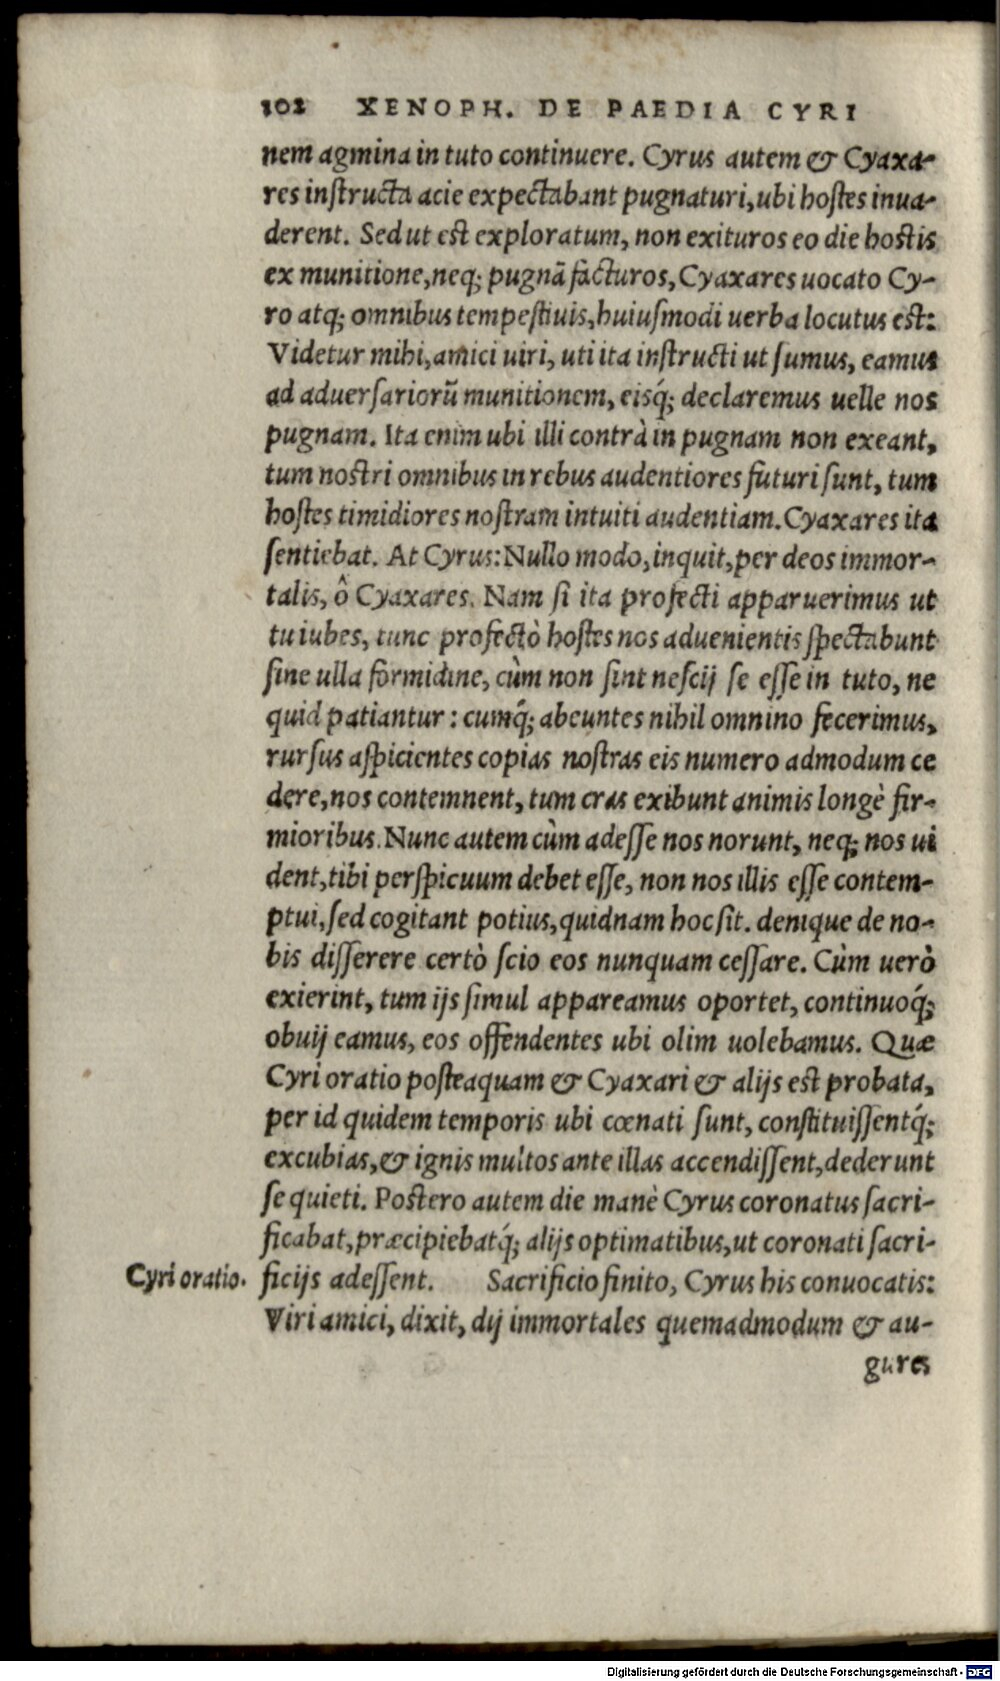 102 XENOPH. DE PAEDIA CYRI
nem agmina in tuto continuere. Cyrus autem & Cyaxa-
res instructa acie expectabant pugnaturi, ubi hostes inua-
derent. Sed ut est exploratum, non exituros eo die hostis
ex munitione, neq; pugnã facturos, Cyaxares uocato Cy-
ro atq; omnibus tempestiuis, huiusmodi uerba locutus est:
Videtur mihi, amici uiri, uti ita instructi ut sumus, eamus
ad aduersariorũ munitionem, eisq́; declaremus uelle nos
pugnam. Ita enim ubi illi contrà in pugnam non exeant,
tum nostri omnibus in rebus audentiores futuri sunt, tum
hostes timidiores nostram intuiti audentiam. Cyaxares ita
sentiebat. At Cyrus: Nullo modo, inquit, per deos immor-
talis, ô Cyaxares. Nam si ita profecti apparuerimus ut
tu iubes, tunc profectò hostes nos aduenientis spectabunt
sine ulla formidine, cùm non sint nescij se esse in tuto, ne
quid patiantur: cumq́; abeuntes nihil omnino fecerimus,
rursus aspicientes copias nostras eis numero admodum ce
dere, nos contemnent, tum cras exibunt animis longè fir-
mioribus. Nunc autem cùm adesse nos norunt, neq; nos ui
dent, tibi perspicuum debet esse, non nos illis esse contem-
ptui, sed cogitant potius, quidnam hoc sit. denique de no-
bis disserere certò scio eos nunquam cessare. Cùm uerò
exierint, tum ijs simul appareamus oportet, continuoq́;
obuij eamus, eos offendentes ubi olim uolebamus. Quæ
Cyri oratio posteaquam & Cyaxari & alijs est probata,
per id quidem temporis ubi cœnati sunt, constituissentq́;
excubias, & ignis multos ante illas accendissent, dederunt
se quieti. Postero autem die manè Cyrus coronatus sacri-
ficabat, præcipiebatq́; alijs optimatibus, ut coronati sacri-
Cyri oratio. ficijs adessent. Sacrificio finito, Cyrus his conuocatis:
Viri amici, dixit, dij immortales quemadmodum & au-
gures
Digitalisierung gefördert durch die Deutsche Forschungsgemeinschaft - DFG